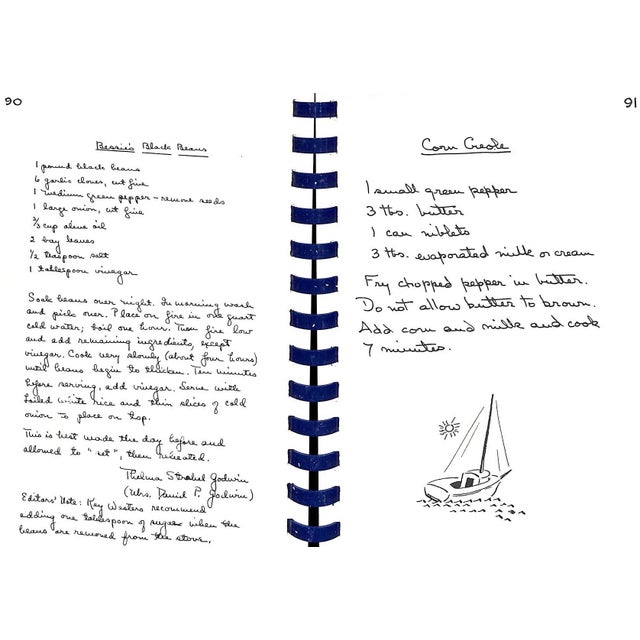 90
Bessie's Black Beans
1 pound black beans
6 garlic cloves, cut fine
1 medium green pepper - remove seeds
1 large onion, cut fine
2/3 cup olive oil
2 bay leaves
1/2 teaspoon salt
1 tablespoon vinegar
Soak beans over night. In morning wash
and pick over. Place on fire in one quart
cold water; boil one hour. Turn fire low
and add remaining ingredients, except
vinegar. Cook very slowly (about four hours)
until beans begin to thicken. Ten minutes
before serving, add vinegar. Serve with
boiled white rice and thin slices of cold
onion to place on top.
This is best made the day before and
allowed to "set", then reheated.
Thelma Strabel Godwin
(Mrs. Daniel P. Godwin)
Editors' Note: Key Westers recommend
adding one tablespoon of sugar when the
beans are removed from the stove.
91
Corn Creole
1 small green pepper
3 tbs. butter
1 can niblets
3 tbs. evaporated milk or cream
Fry chopped pepper in butter.
Do not allow butter to brown.
Add corn and milk and cook
7 minutes.